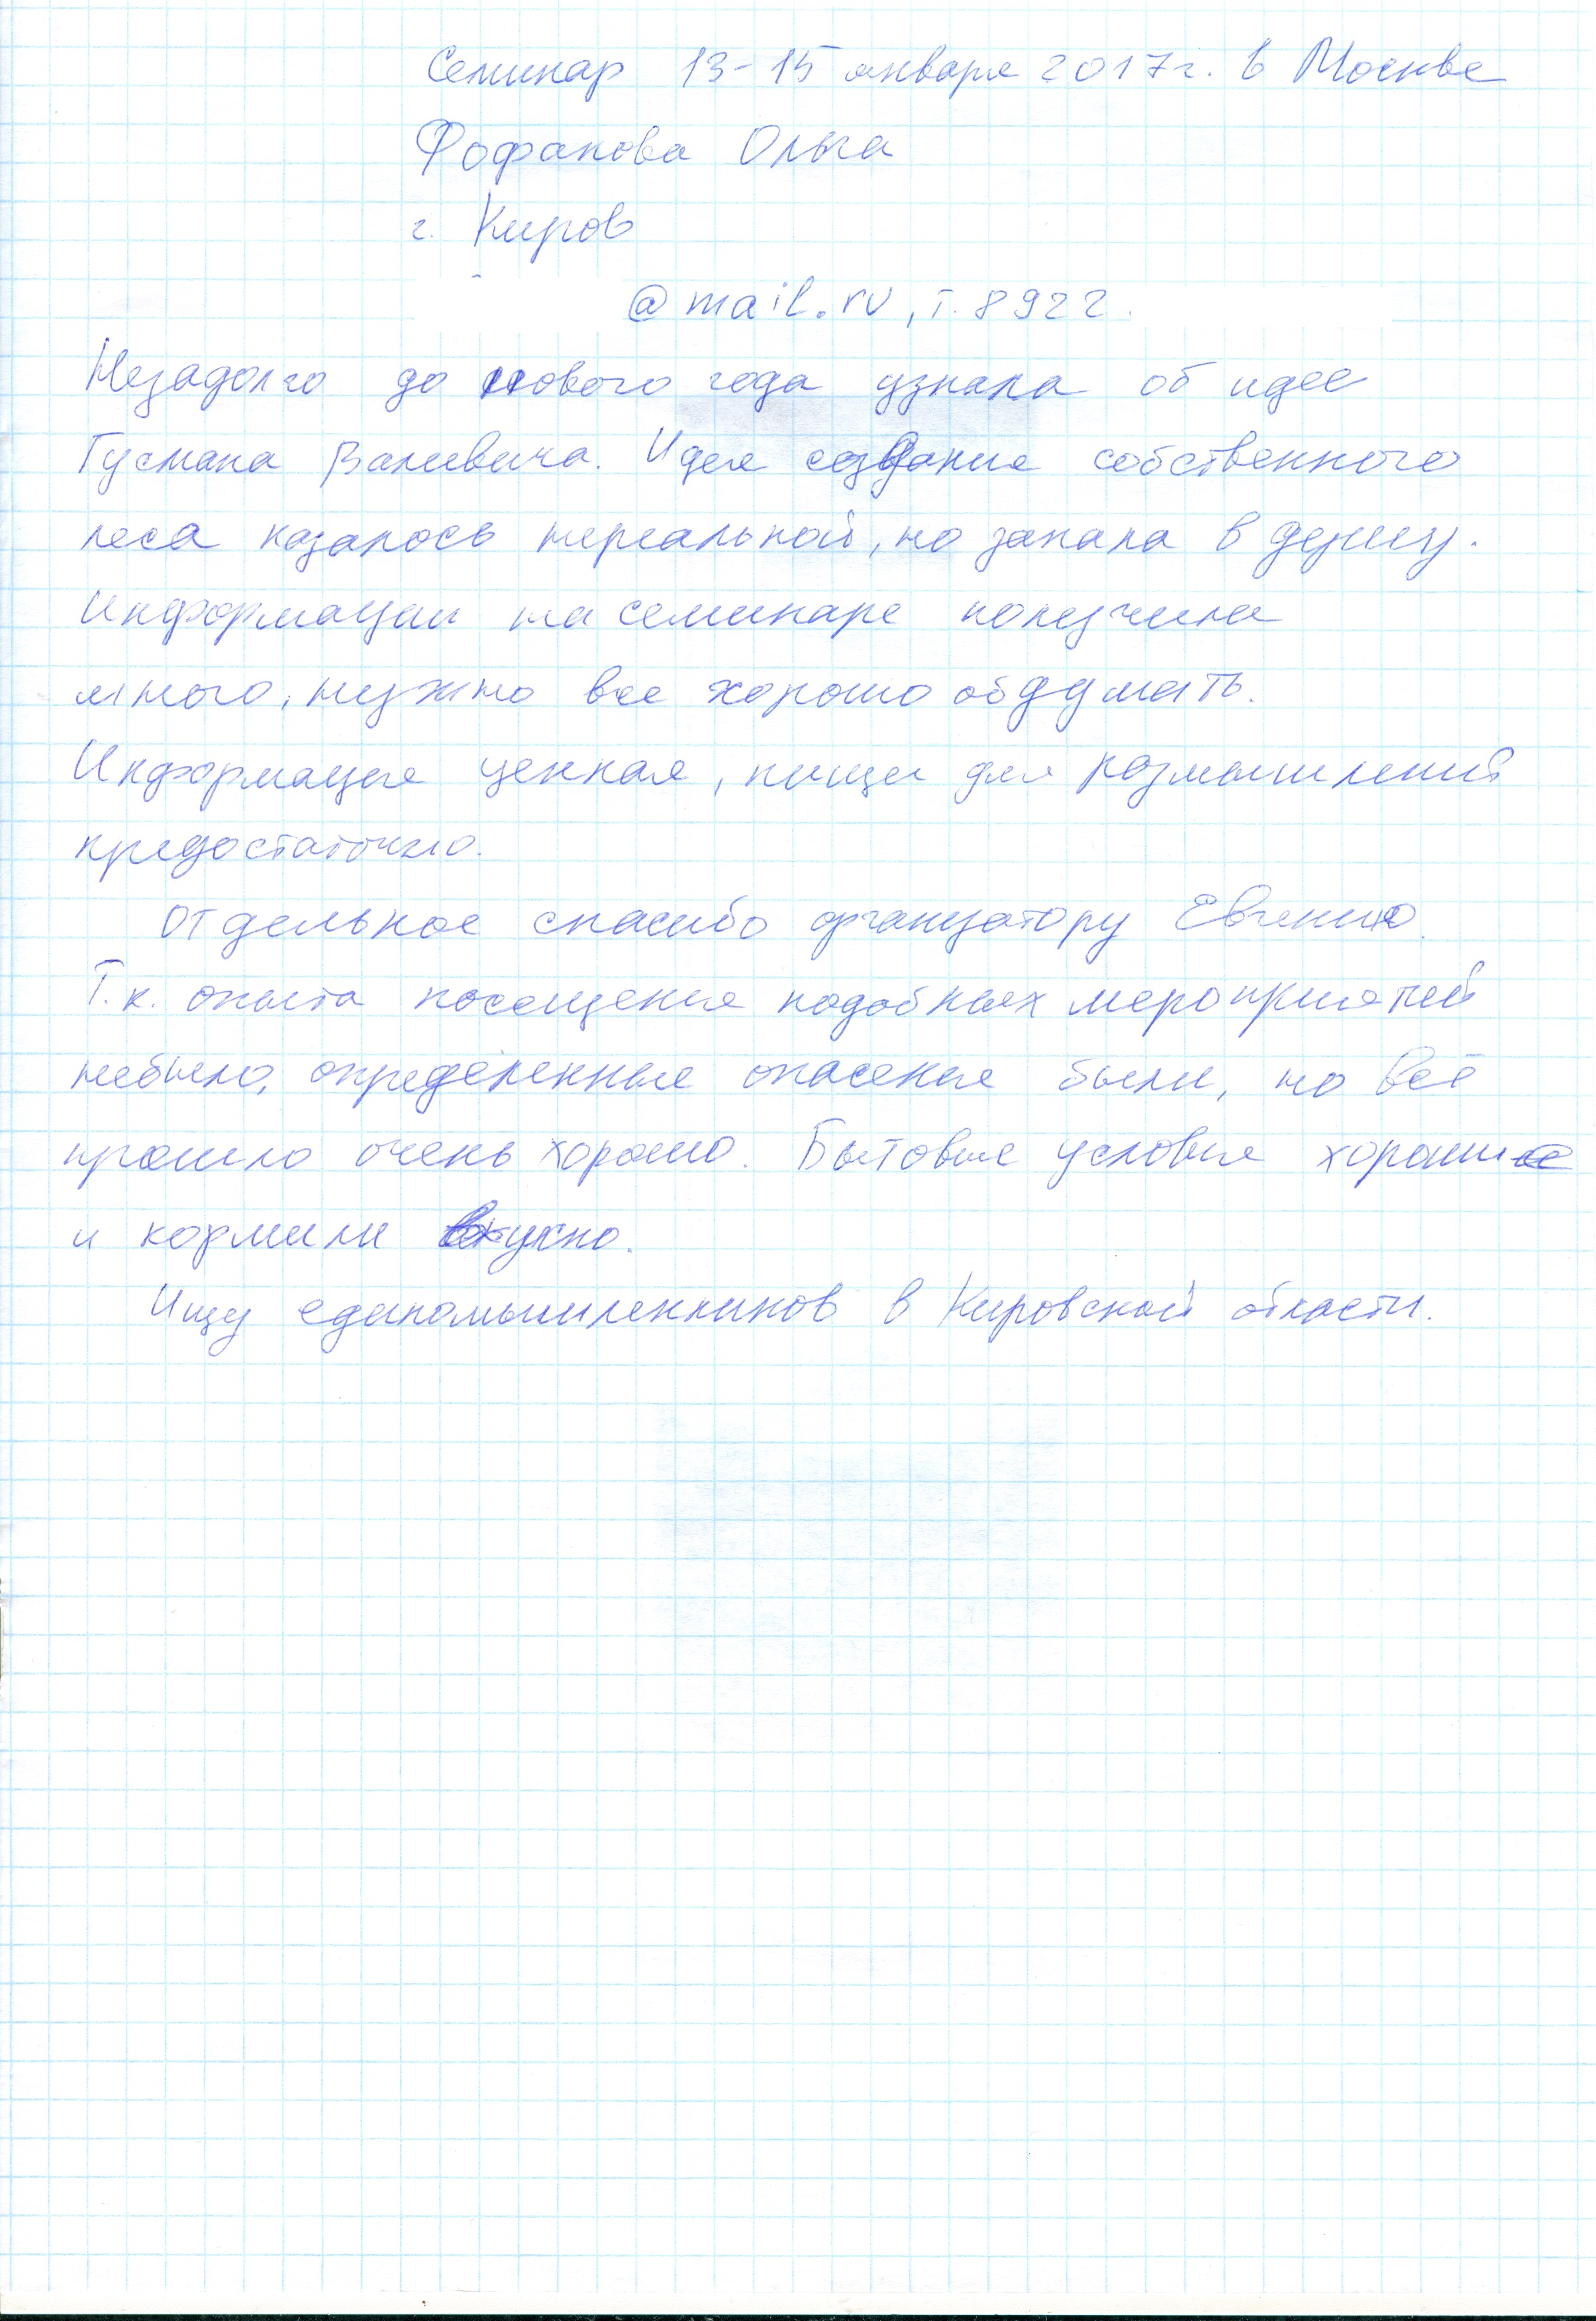 Семинар 13-15 января 2017г. в Москве
Фофанова Ольга
г. Киров
@mail.ru, т. 8922
Незадолго до нового года узнала об идее
Гусмана Валеевича. Идея создания собственного
леса казалось нереальной, но запала в душу.
Информации на семинаре получила
много, нужно все хорошо обдумать.
Информация ценная, пищи для размышлений
предостаточно.
Отдельное спасибо организатору Евгению.
Т.к. опыта посещения подобных мероприятий
небыло, определенные опасения были, но всё
прошло очень хорошо. Бытовые условия хорошие
и кормили вкусно.
Ищу единомышленников в Кировской области.